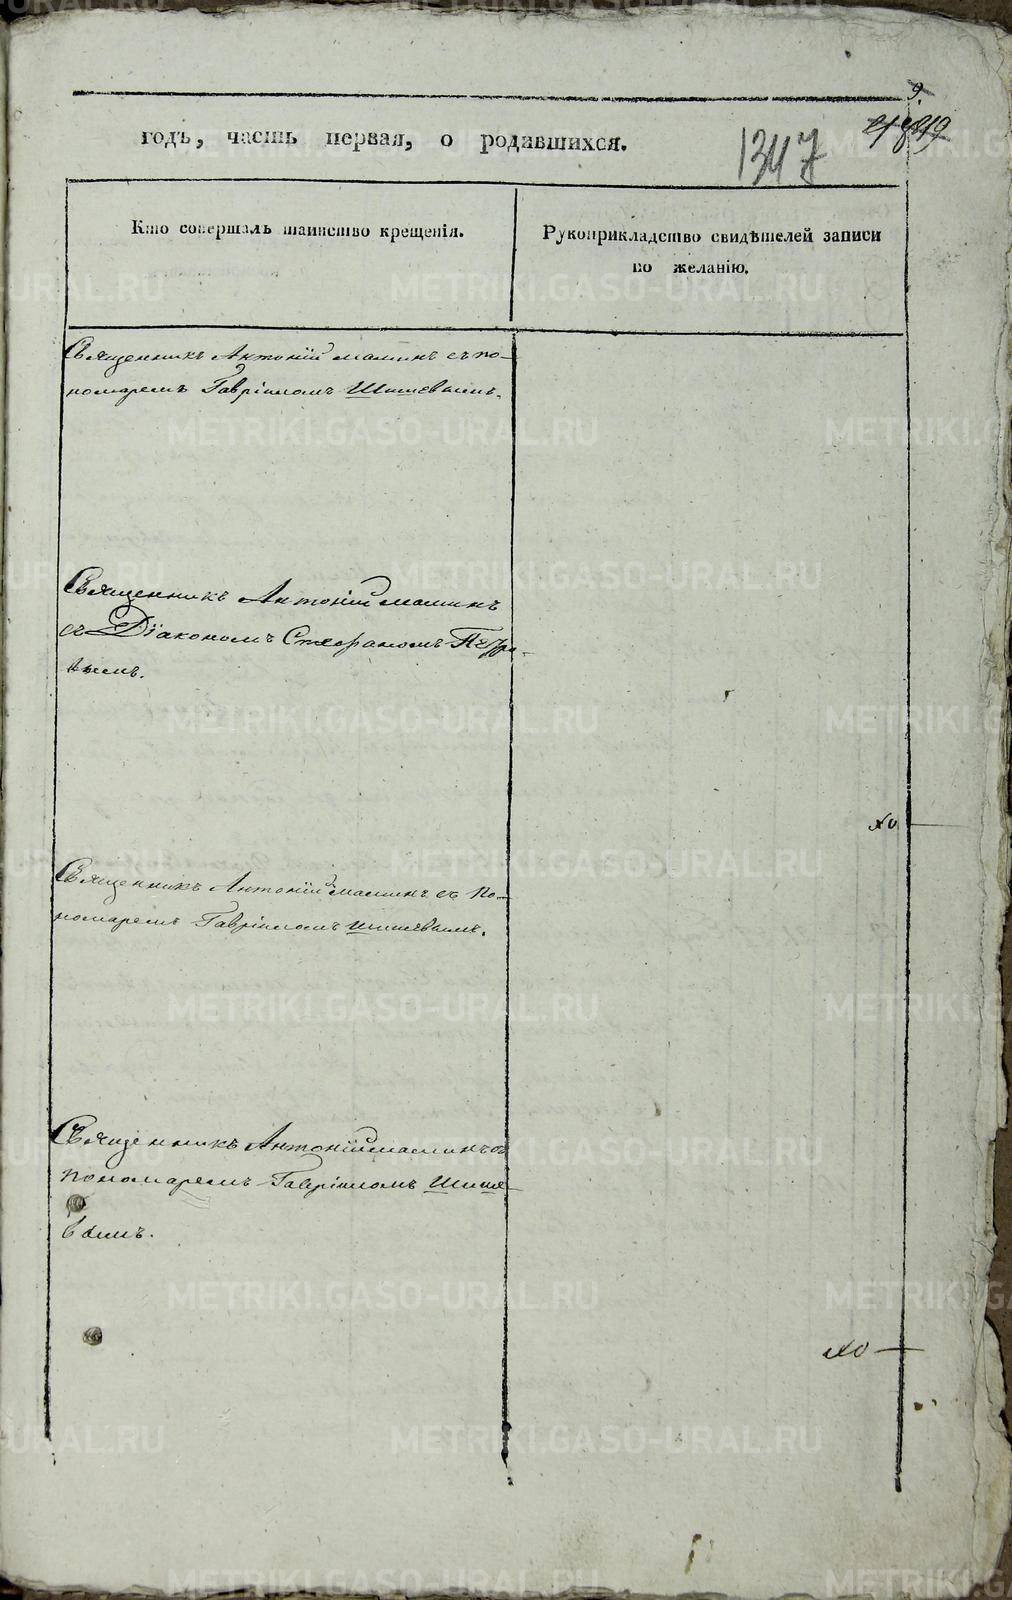 9.
годъ, часть первая, о родившихся.
1347
Кто совершалъ таинство крещенія.
Рукоприкладство свидѣтелей записи
по желанію.
Священникъ Антоній Маминъ съ по-
номаремъ Гавріиломъ Шишевымъ.
Священникъ Антоній Маминъ
съ Діакономъ Стефаномъ
Священникъ Антоній Маминъ съ по-
номаремъ Гавріиломъ Шишевымъ.
Священникъ Антоній Маминъ съ
пономаремъ Гавріиломъ Шише-
вымъ.
METRIKI.GASO-URAL.RU